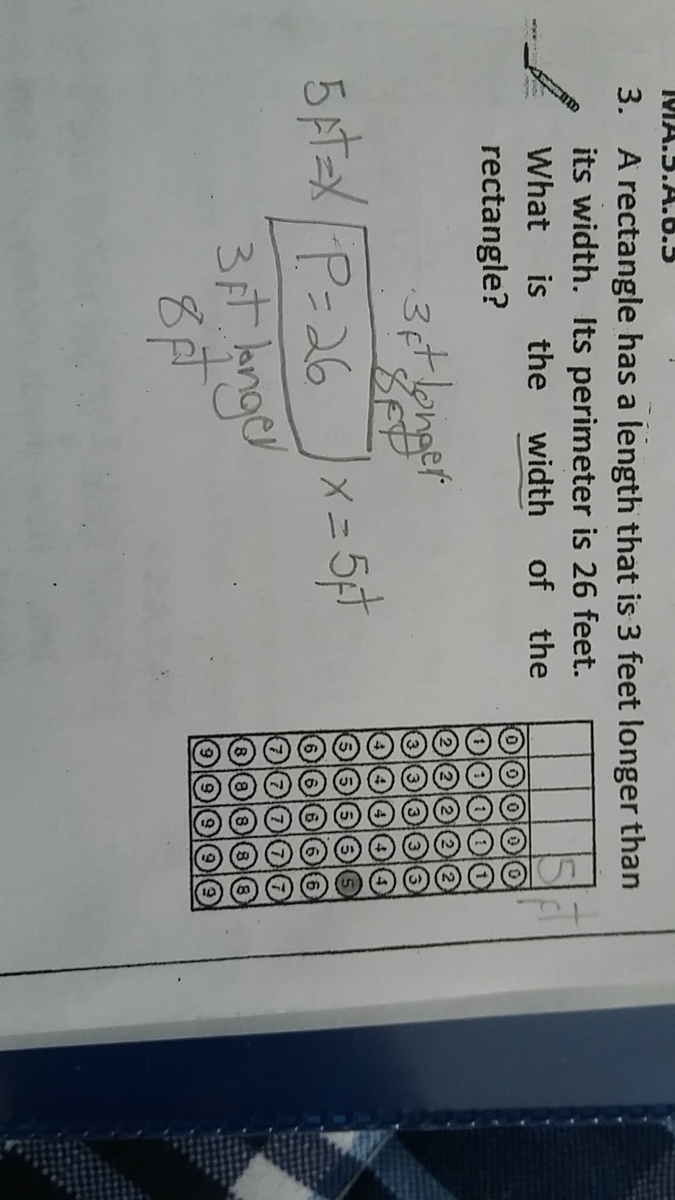 MA.5.A.6.5
3. A rectangle has a length that is 3 feet longer than
its width. Its perimeter is 26 feet.
What is the width of the
rectangle?
5 ft
3 ft longer
8 ft
5 ft = x
P = 26
x = 5 ft
3 ft longer
8 ft
0 0 0 0 0
1 1 1 1 1
2 2 2 2 2
3 3 3 3 3
4 4 4 4 4
5 5 5 5 5
6 6 6 6 6
7 7 7 7 7
8 8 8 8 8
9 9 9 9 9